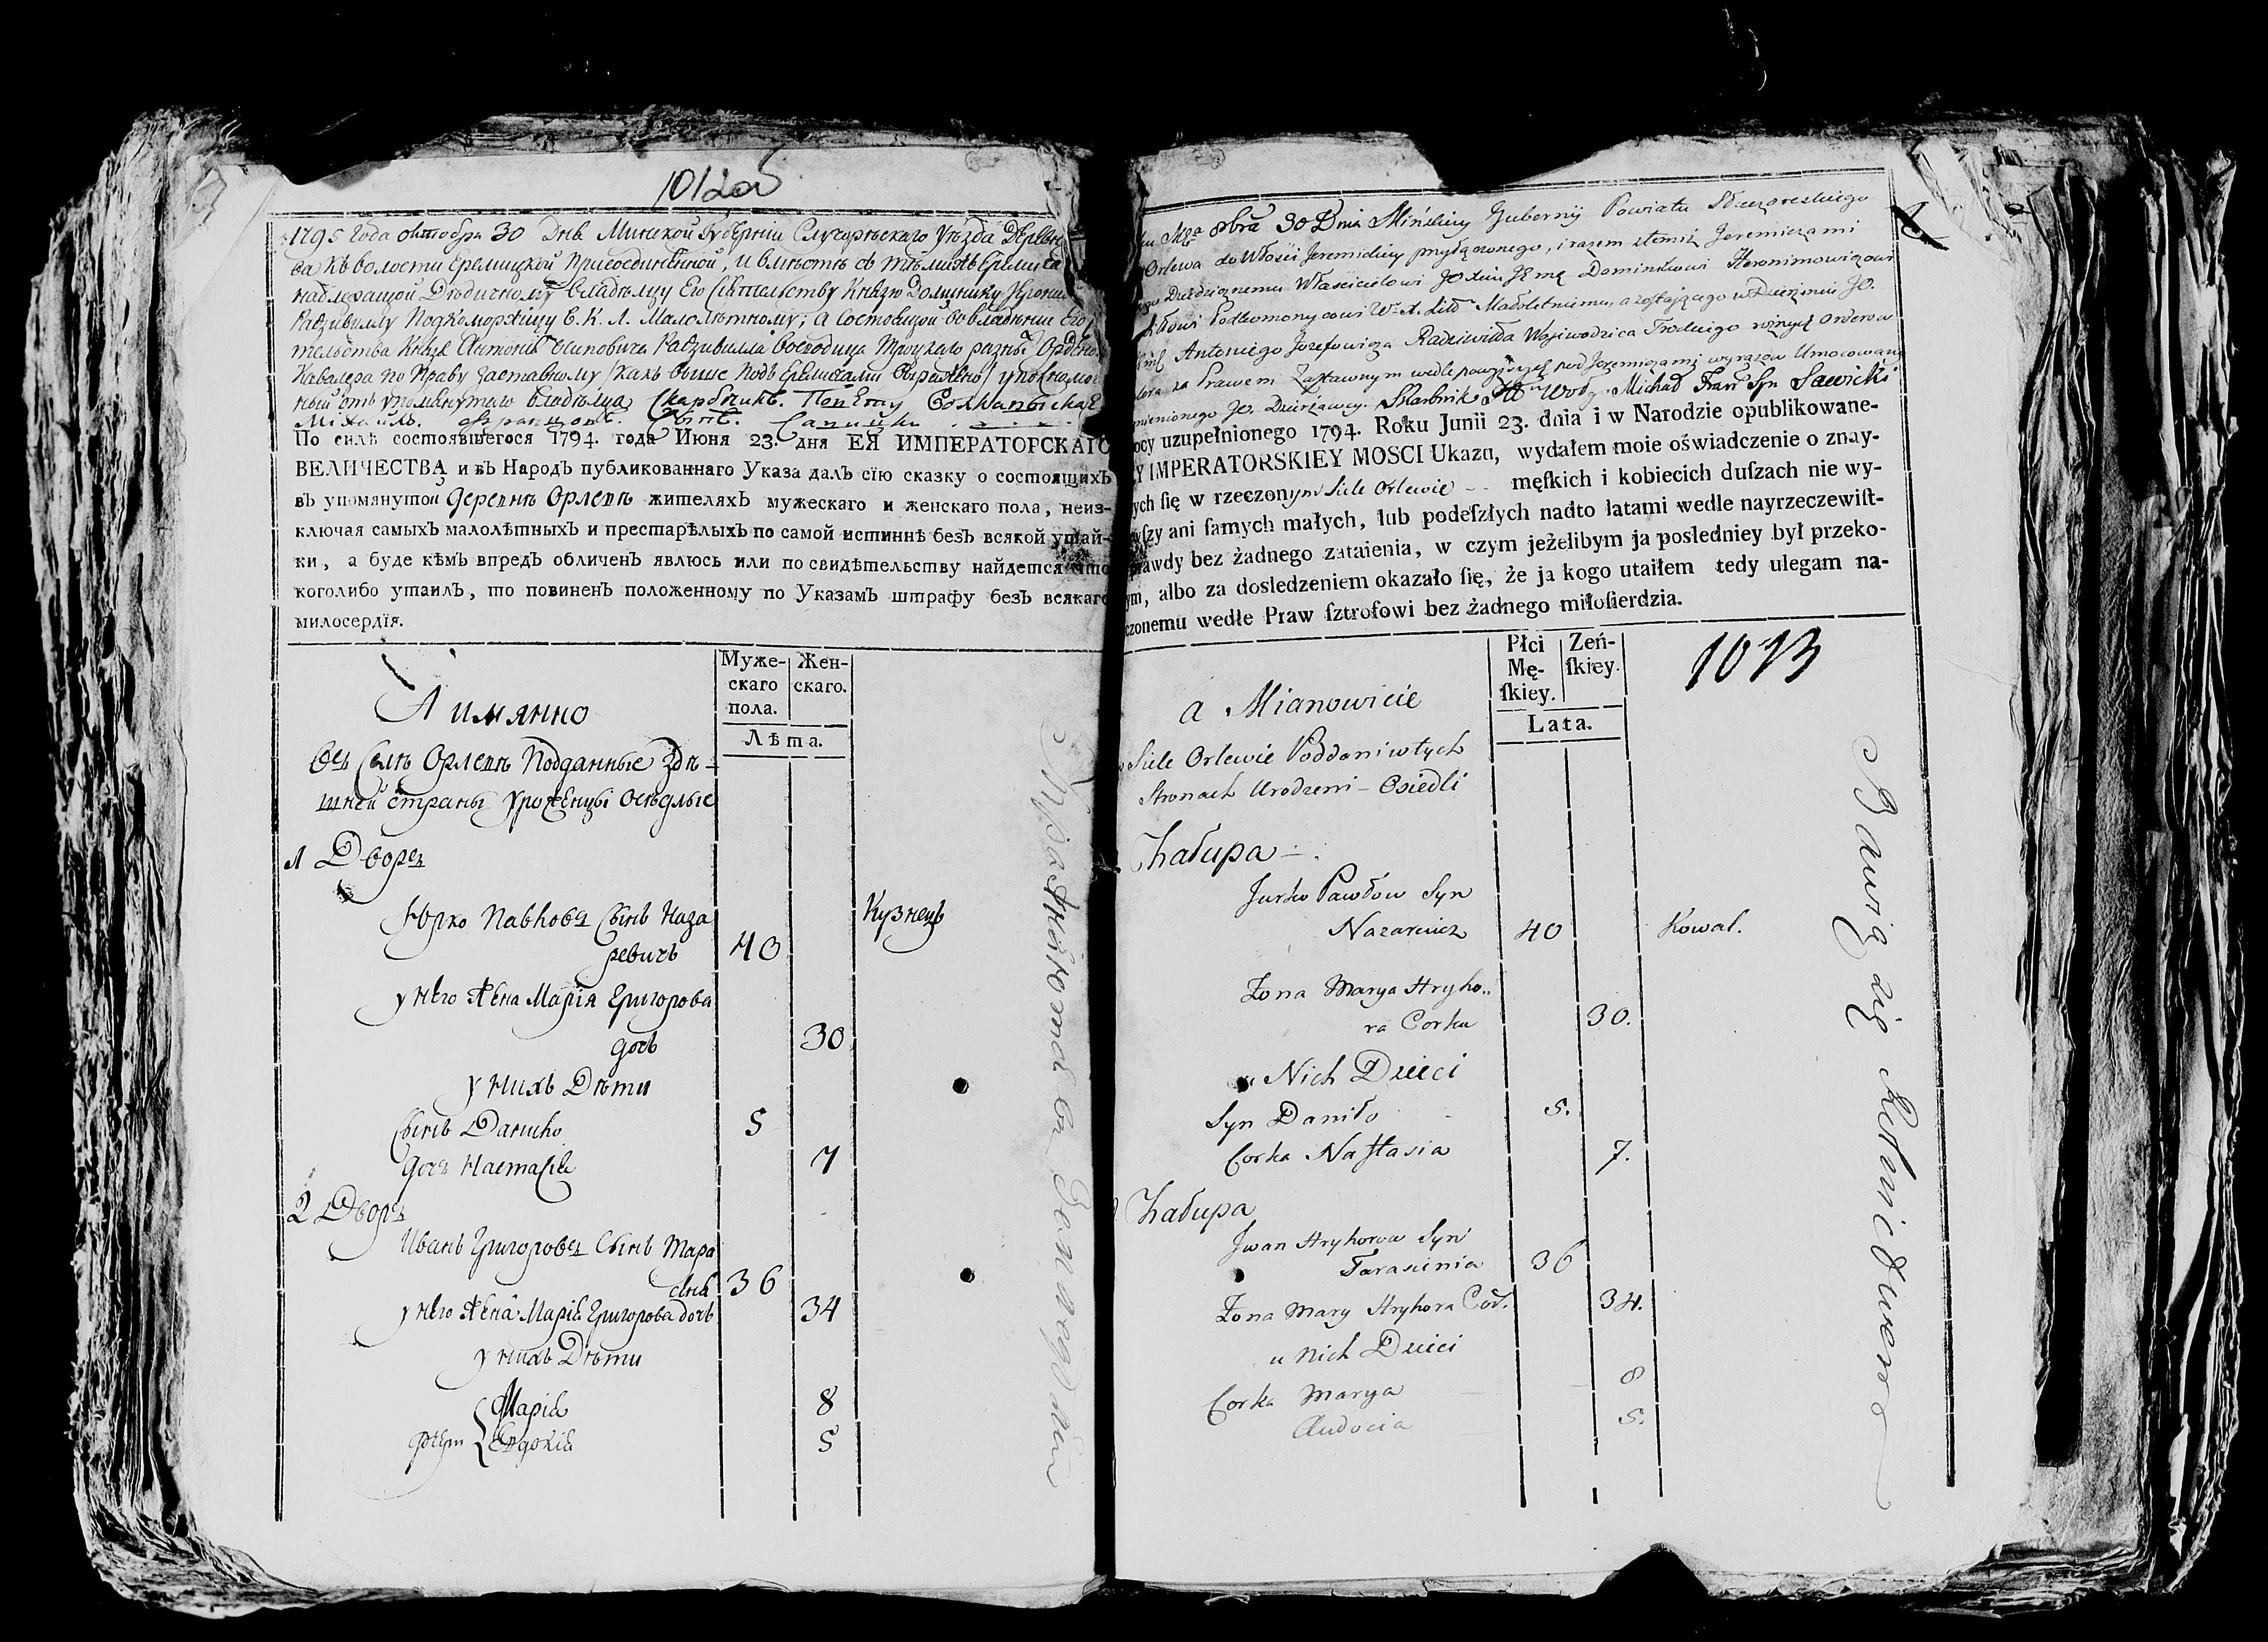 1012об
1795 года октября 30 Дня Минской Губернии Слуцорѣскаго Уѣзда Деревн
ва къ волости Еремицкой присоединенной, и вмѣстѣ съ тѣми жъ Еремича
надлежащой Дѣдичному владѣльцу Его Сіятельству Князю Доминику Иерони
Радзивиллу Подкоморжицу В. К. Л. Малолѣтному; а состоящой во владѣнии Его
тельства Князя Антонія Осиповича Радзивилла Воеводица Троцкаго разных Ордено
Кавалера по праву заставному (какъ выше подъ Еремичами выражено) уполномо
ный отъ упомянутаго владѣльца Скарбникъ
Михаилъ Францовъ Сынъ Савицки
По силѣ состоявшегося 1794. года Июня 23. дня ЕЯ ИМПЕРАТОРСКАГО
ВЕЛИЧЕСТВА и въ Народъ публикованнаго Указа далъ сїю сказку о состоящихъ
въ упомянутой деревнѣ Орлевѣ жителяхъ мужескаго и женскаго пола, неиз-
ключая самыхъ малолѣтныхъ и престарѣлыхъ по самой истиннѣ безъ всякой утай-
ки, а буде кѣмъ впредъ обличенъ явлюсь или по свидѣтельству найдется что
коголибо утаилъ, то повиненъ положенному по Указамъ штрафу безъ всякаго
милосердїя.
А имянно
Муже-
скаго
пола.
Жен-
скаго.
Лѣта.
Въ Селѣ Орлевѣ Подданные здѣ-
шней страны уроженцы осѣдлые
1 Дворъ
Юрко Павловъ Сынъ Наза
ревичъ 40 Кузнецъ
у него жена Марія Григорова
дочь 30
у нихъ Дѣти
Сынъ Данило 5
дочь Настасія 7
2 Дворъ
Иванъ Григоровъ Сынъ Тара
36
у него жена Марія Григорова дочь 34
у нихъ Дѣти
Марія 8
дочери Евдокія 5
Проживаютъ въ
ku Mca 8bra 30 Dnia Mińskiey Gubernij Powiatu Słuzoreskiego
Orlewa do Włości Jeremickiey przyłączonego, i razem ztemiż Jeremiczami
Dziedzicznemu Właścicielowi JO Xciu JEmę Dominikowi Heronimowiczowi
Podkomorzycowi W. X. Litt Małoletniemu, a zostającego w Dzierżeniu JO.
Antoniego Jozefowicza Radziwiłła Wojewodzica Trockiego różnych Orderow
za Prawem Zastawnym wedle powyższych pod Jeremiczami wyrazow Umocowany
mienionego JO. Dzierżawcy. Skarbnik Michał Fran Syn Sawicki
ocy uzupełnionego 1794. Roku Junii 23. dnia i w Narodzie opublikowane-
Y IMPERATORSKIEY MOSCI Ukazu, wydałem moie oświadczenie o znay-
ych się w rzeczonym Siele Orlewie -- męſkich i kobiecich duſzach nie wy-
wſzy ani ſamych małych, lub podeſzłych nadto latami wedle nayrzeczewiſt-
rawdy bez żadnego zataienia, w czym jeżelibym ja posledniey był przeko-
ym, albo za dosledzeniem okazało ſię, że ja kogo utaiłem tedy ulegam na-
czonemu wedłe Praw ſztrofowi bez żadnego miłoſierdzia.
a Mianowicie
Płci
Mę-
ſkiey.
Zeń-
ſkiey.
Lata.
1013
Siele Orlewie Poddani w tych
Stronach Urodzeni - Osiedli
Chałupa
Jurko Pawłow Syn
Nazarewicz 40 Kowal.
Żona Marya Hryho..
ra Corka 30.
u Nich Dzieci
Syn Daniło 5.
Corka Naſtasia 7.
Chałupa
Jwan Hryhorow Syn
36
Żona Mary Hryhora Cor. 34.
u nich Dzieci
Corka Marya 8
Audocia 5.
Bawią się Rolnictwem